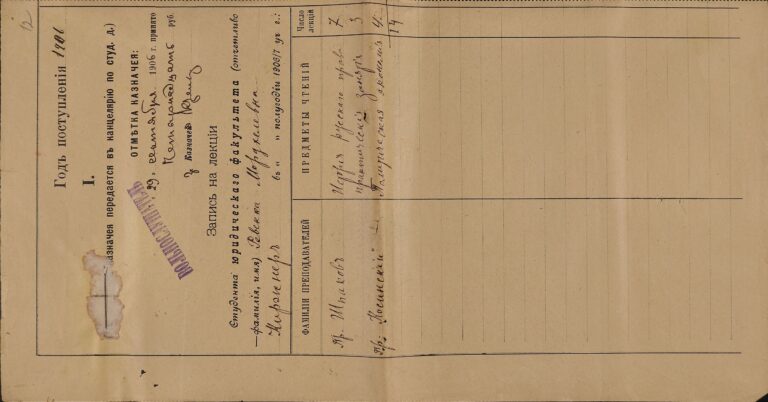 12
Годъ поступленія 1906
I.
азначея передается въ канцелярію по студ. д.)
ОТМѢТКА КАЗНАЧЕЯ:
29, сентября 1906 г. принято
Пятнадцать руб.
Казначей
ВОЛЬНОСЛУШАТЕЛЬ
Запись на лекціи
Студента юридическаго факультета (отчетливо
—фамилія, имя) Ревекка Мордхелевна
въ „ „ полугодіи 1906/7 уч. г.:
ФАМИЛІИ ПРЕПОДАВАТЕЛЕЙ
ПРЕДМЕТЫ ЧТЕНІЙ
Число лекцій
Пр. Шпаковъ
Исторія русскаго прав
7
практическія занятія
3
Пр. Косинскій
Политическая экономія
4
14